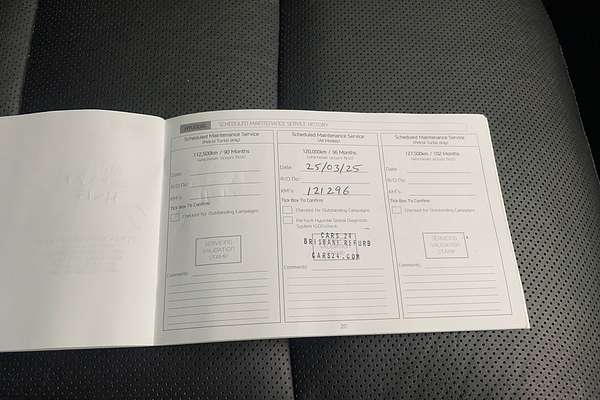 HYUNDAI SCHEDULED MAINTENANCE SERVICE HISTORY
Scheduled Maintenance Service
(Petrol Turbo only)
112,500km / 90 Months
(whichever occurs first)
Date:
R/O No:
KM's:
Tick Box To Confirm
Checked for Outstanding Campaigns
SERVICING
VALIDATION
STAMP
Comments:
Scheduled Maintenance Service
(All Models)
120,000km / 96 Months
(whichever occurs first)
Date: 25/03/25
R/O No:
KM's: 121296
Tick Box To Confirm
Checked for Outstanding Campaigns
Perform Hyundai Global Diagnostic
System (GDS) check
CARS 24
BRISBANE REFURB
CARS24.COM
Comments:
Scheduled Maintenance Service
(Petrol Turbo only)
127,500km / 102 Months
(whichever occurs first)
Date:
R/O No:
KM's:
Tick Box To Confirm
Checked for Outstanding Campaigns
SERVICING
VALIDATION
STAMP
Comments:
20